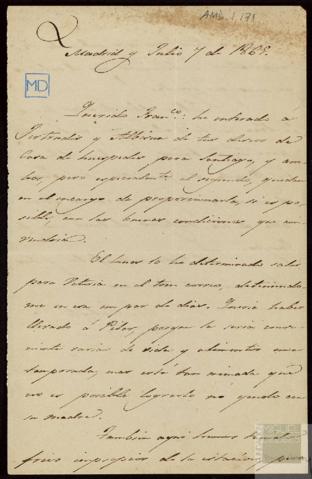 AMD. 1 131
Madrid y Julio 7 de 1865.
MD
Querido Franco: he enterado á
y Albina de tus deseos de
Casa de huespedes para Santiago, y am-
bos, pero especialmte el segundo, quedan
en el encargo de proporcionarla, si es po-
sible, con las buenas condiciones que con-
vendria.
El lunes 10 he determinado salir
para Vitoria en el tren correo, deteniendo-
me en esa un par de dias. Queria haber
llevado á Pilar, porque le seria conve-
niente variar de vida y alimentos una
temporada, mas está tan mimada que
no es posible lograrlo no yendo con
su madre.
Tambien aqui hemos tenido
frio impropio de la estacion, pero